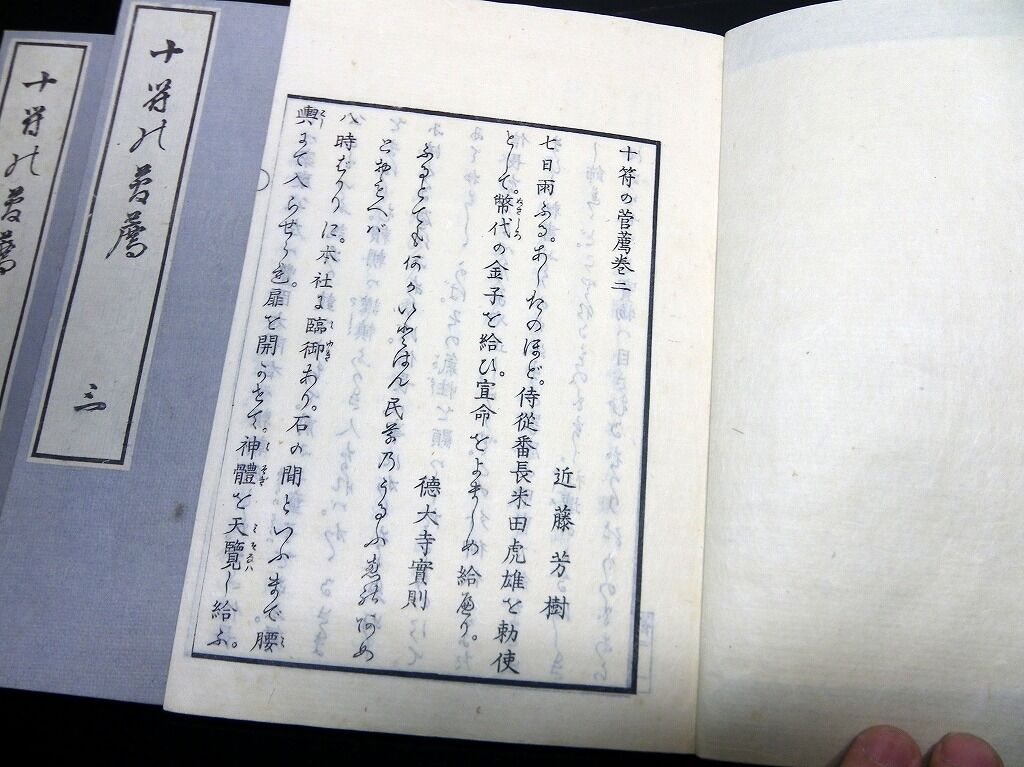 十符の菅薦巻二
近藤芳樹
七日雨ふる。あしたのほど。侍従番長米田虎雄を勅使
として。幣代の金子を給ひ。宣命をよましめ給へり。
徳大寺實則
ふるとても何かいとはん民草乃うるふ恵の
とおもへバ
八時ばかりに。本社に臨御あり。石の間といふまで腰
輿にて入らせられ。扉を開かせて神體を天覧し給ふ。
十符の菅薦 三
十符の菅薦